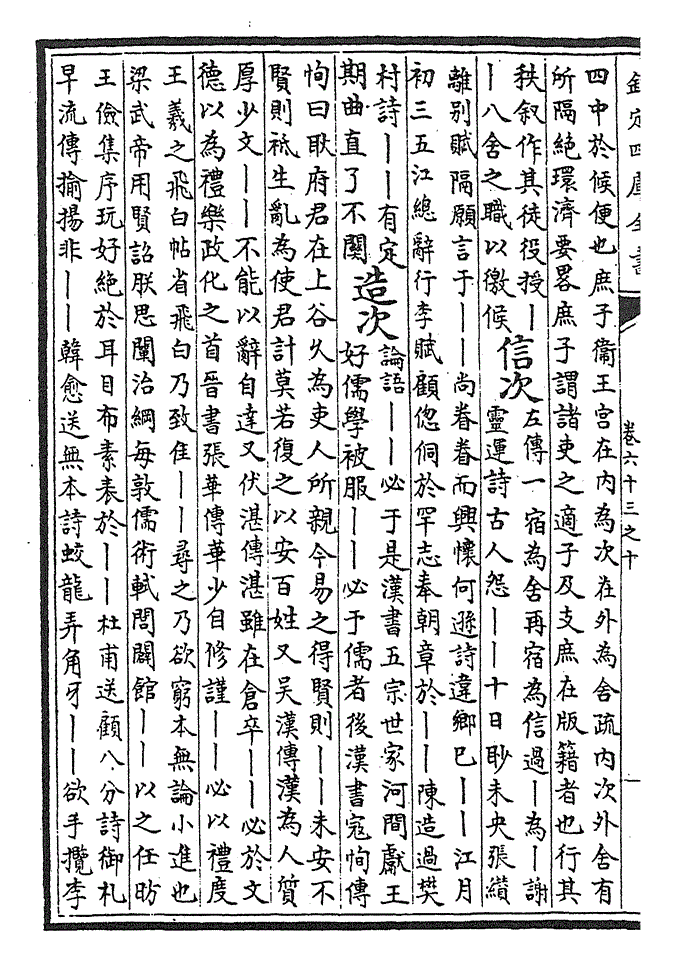 欽定四庫全書
卷六十三之十
四中於候便也庶子衞王宫在内為次在外為舍疏内次外舍有
所隔絶環濟要畧庶子謂諸吏之適子及支庶在版籍者也行其
秩叙作其徒役授丨
丨八舍之職以徼候
信次
左傳一宿為舍再宿為信過丨為丨謝
靈運詩古人怨丨丨十日眇未央張纘
離别賦隔願言于丨丨尚眷眷而興懷何遜詩違鄉已丨丨江月
初三五江總辭行李賦顧偬侗於罕志奉朝章於丨丨陳造過樊
村詩丨丨有定
期曲直了不關
造次
論語丨丨必于是漢書五宗世家河間獻王
好儒學被服丨丨必于儒者後漢書寇恂傳
恂曰耿府君在上谷久為吏人所親今易之得賢則丨丨未安不
賢則祗生亂為使君計莫若復之以安百姓又吴漢傳漢為人質
厚少文丨丨不能以辭自達又伏湛傳湛雖在倉卒丨丨必於文
德以為禮樂政化之首晉書張華傳華少自修謹丨丨必以禮度
王羲之飛白帖省飛白乃致佳丨丨尋之乃欲窮本無論小進也
梁武帝用賢詔朕思闡治綱每敦儒術軾閭闢館丨丨以之任昉
王儉集序玩好絶於耳目布素表於丨丨杜甫送顧八分詩御札
早流傳揄揚非丨丨韓愈送無本詩蛟龍弄角牙丨丨欲手攬李